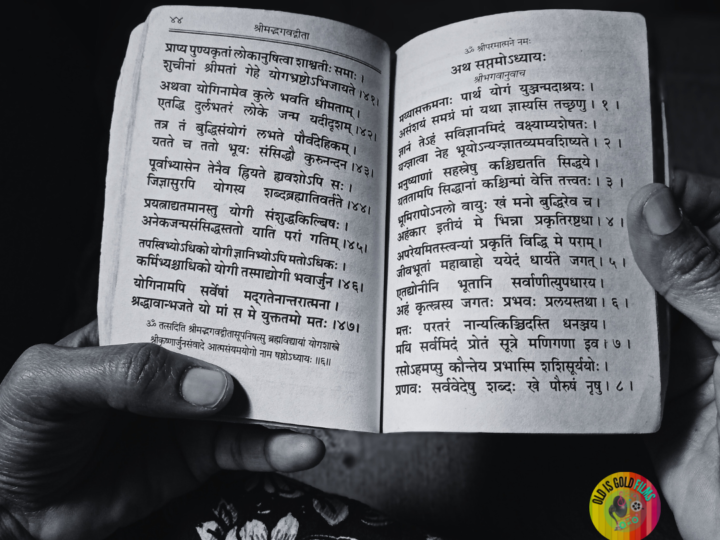 ४४
श्रीमद्भगवद्गीता
प्राप्य पुण्यकृतां लोकानुषित्वा शाश्वतीः समाः ।
शुचीनां श्रीमतां गेहे योगभ्रष्टोऽभिजायते ।४१।
अथवा योगिनामेव कुले भवति धीमताम् ।
एतद्धि दुर्लभतरं लोके जन्म यदीदृशम् ।४२।
तत्र तं बुद्धिसंयोगं लभते पौर्वदेहिकम् ।
यतते च ततो भूयः संसिद्धौ कुरुनन्दन ।४३।
पूर्वाभ्यासेन तेनैव ह्रियते ह्यवशोऽपि सः ।
जिज्ञासुरपि योगस्य शब्दब्रह्मातिवर्तते ।४४।
प्रयत्नाद्यतमानस्तु योगी संशुद्धकिल्बिषः ।
अनेकजन्मसंसिद्धस्ततो याति परां गतिम् ।४५।
तपस्विभ्योऽधिको योगी ज्ञानिभ्योऽपि मतोऽधिकः ।
कर्मिभ्यश्चाधिको योगी तस्माद्योगी भवार्जुन ।४६।
योगिनामपि सर्वेषां मद्गतेनान्तरात्मना ।
श्रद्धावान्भजते यो मां स मे युक्ततमो मतः ।४७।
ॐ तत्सदिति श्रीमद्भगवद्गीतासूपनिषत्सु ब्रह्मविद्यायां योगशास्त्रे
श्रीकृष्णार्जुनसंवादे आत्मसंयमयोगो नाम षष्ठोऽध्यायः ॥६॥
ॐ श्रीपरमात्मने नमः
अथ सप्तमोऽध्यायः
श्रीभगवानुवाच
मय्यासक्तमनाः पार्थ योगं युञ्जन्मदाश्रयः ।
असंशयं समग्रं मां यथा ज्ञास्यसि तच्छृणु । १ ।
ज्ञानं तेऽहं सविज्ञानमिदं वक्ष्याम्यशेषतः ।
यज्ज्ञात्वा नेह भूयोऽन्यज्ज्ञातव्यमवशिष्यते । २ ।
मनुष्याणां सहस्रेषु कश्चिद्यतति सिद्धये ।
यततामपि सिद्धानां कश्चिन्मां वेत्ति तत्त्वतः । ३ ।
भूमिरापोऽनलो वायुः खं मनो बुद्धिरेव च ।
अहंकार इतीयं मे भिन्ना प्रकृतिरष्टधा । ४ ।
अपरेयमितस्त्वन्यां प्रकृतिं विद्धि मे पराम् ।
जीवभूतां महाबाहो ययेदं धार्यते जगत् । ५ ।
एतद्योनीनि भूतानि सर्वाणीत्युपधारय ।
अहं कृत्स्नस्य जगतः प्रभवः प्रलयस्तथा । ६ ।
मत्तः परतरं नान्यत्किञ्चिदस्ति धनञ्जय ।
मयि सर्वमिदं प्रोतं सूत्रे मणिगणा इव । ७ ।
रसोऽहमप्सु कौन्तेय प्रभास्मि शशिसूर्ययोः ।
प्रणवः सर्ववेदेषु शब्दः खे पौरुषं नृषु । ८ ।
OLD IS GOLD FILMS